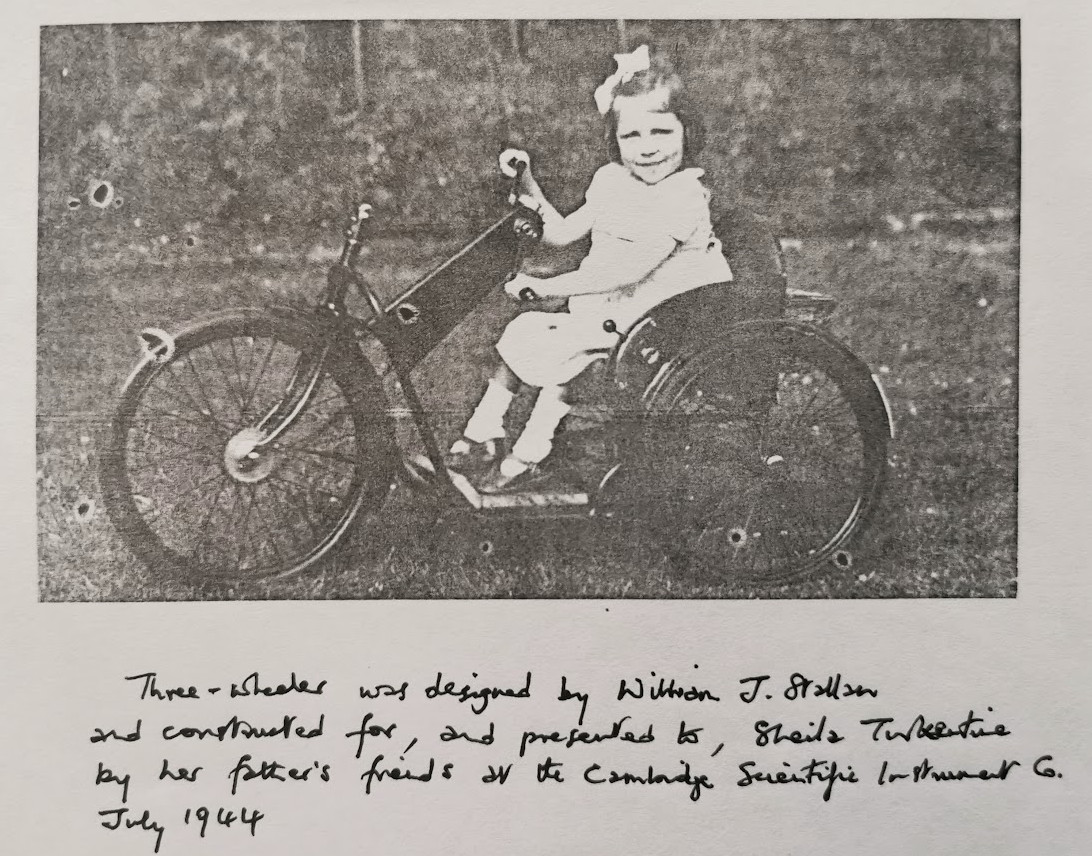 Three-wheeler was designed by William J. Stallan
and constructed for, and presented to, Sheila
by her father's friends at the Cambridge Scientific Instrument Co.
July 1944